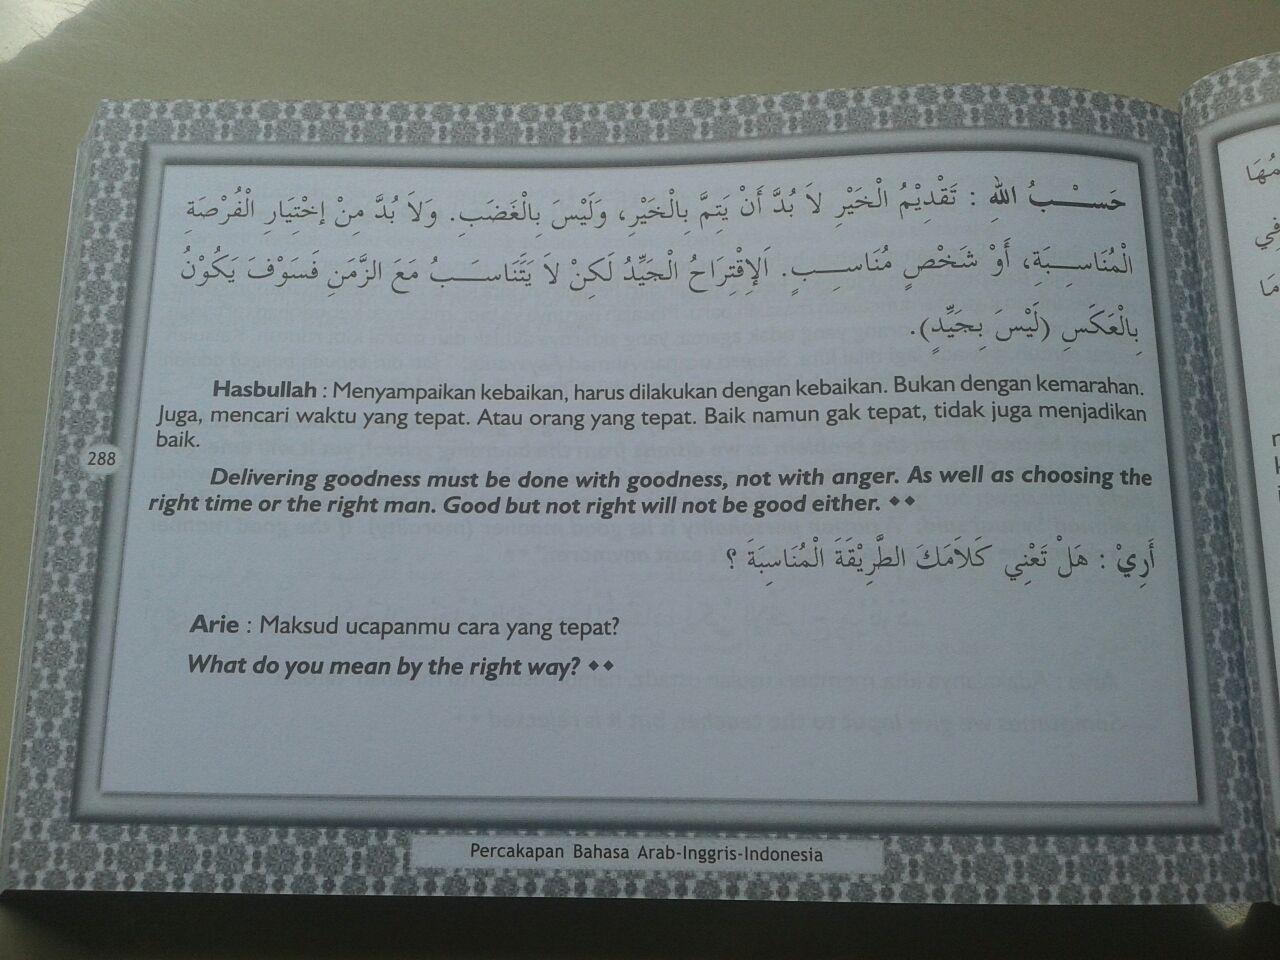 حَسْبُ اللهِ : تَقْدِيْمُ الْخَيْرِ لاَ بُدَّ أَنْ يَتِمَّ بِالْخَيْرِ، وَلَيْسَ بِالْغَضَبِ. وَلاَ بُدَّ مِنْ إخْتِيَارِ الْفُرْصَةِ
الْمُنَاسِبَةِ، أَوْ شَخْصٍ مُنَاسِبٍ. اَلإِقْتِرَاحُ الْجَيِّدُ لَكِنْ لاَ يَتَنَاسَبُ مَعَ الزَّمَنِ فَسَوْفَ يَكُوْنُ
بِالْعَكَسِ (لَيْسَ بِجَيِّدٍ).
Hasbullah : Menyampaikan kebaikan, harus dilakukan dengan kebaikan. Bukan dengan kemarahan.
Juga, mencari waktu yang tepat. Atau orang yang tepat. Baik namun gak tepat, tidak juga menjadikan
baik.
288
Delivering goodness must be done with goodness, not with anger. As well as choosing the
right time or the right man. Good but not right will not be good either.
أَرِيْ : هَلْ تَعْنِي كَلاَمَكَ الطَّرِيْقَةَ الْمُنَاسِبَةَ ؟
Arie : Maksud ucapanmu cara yang tepat?
What do you mean by the right way?
Percakapan Bahasa Arab-Inggris-Indonesia